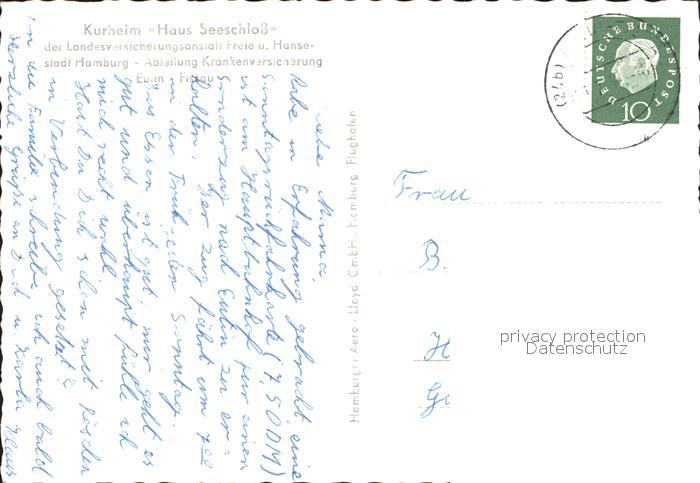 Kurheim "Haus Seeschloß"
der Landesversicherungsanstalt Freie u. Hanse-
stadt Hamburg - Abteilung Krankenversicherung
Eutin - Fissau
Liebe Mama!
Habe in Erfahrung gebracht eine
Sonntagsrückfahrkarte (7,50 DM)
ist am Hauptbahnhof für einen
Sonderzug nach Eutin zu er=
halten. Der Zug fährt um 7
in der Früh jeden Sonntag.
Das Essen ist gut mir geht es
gut und überhaupt fühle ich
mich recht wohl.
Hast Du Dich schon mit
in Verbindung gesetzt?
An die Familie schreibe ich auch bald
Herzliche Grüße an Dich u.
Hamburger Aero - Lloyd GmbH., Hamburg - Flughafen
DEUTSCHE BUNDESPOST
10
(24b)
Frau
B.
H
Ge
privacy protection
Datenschutz